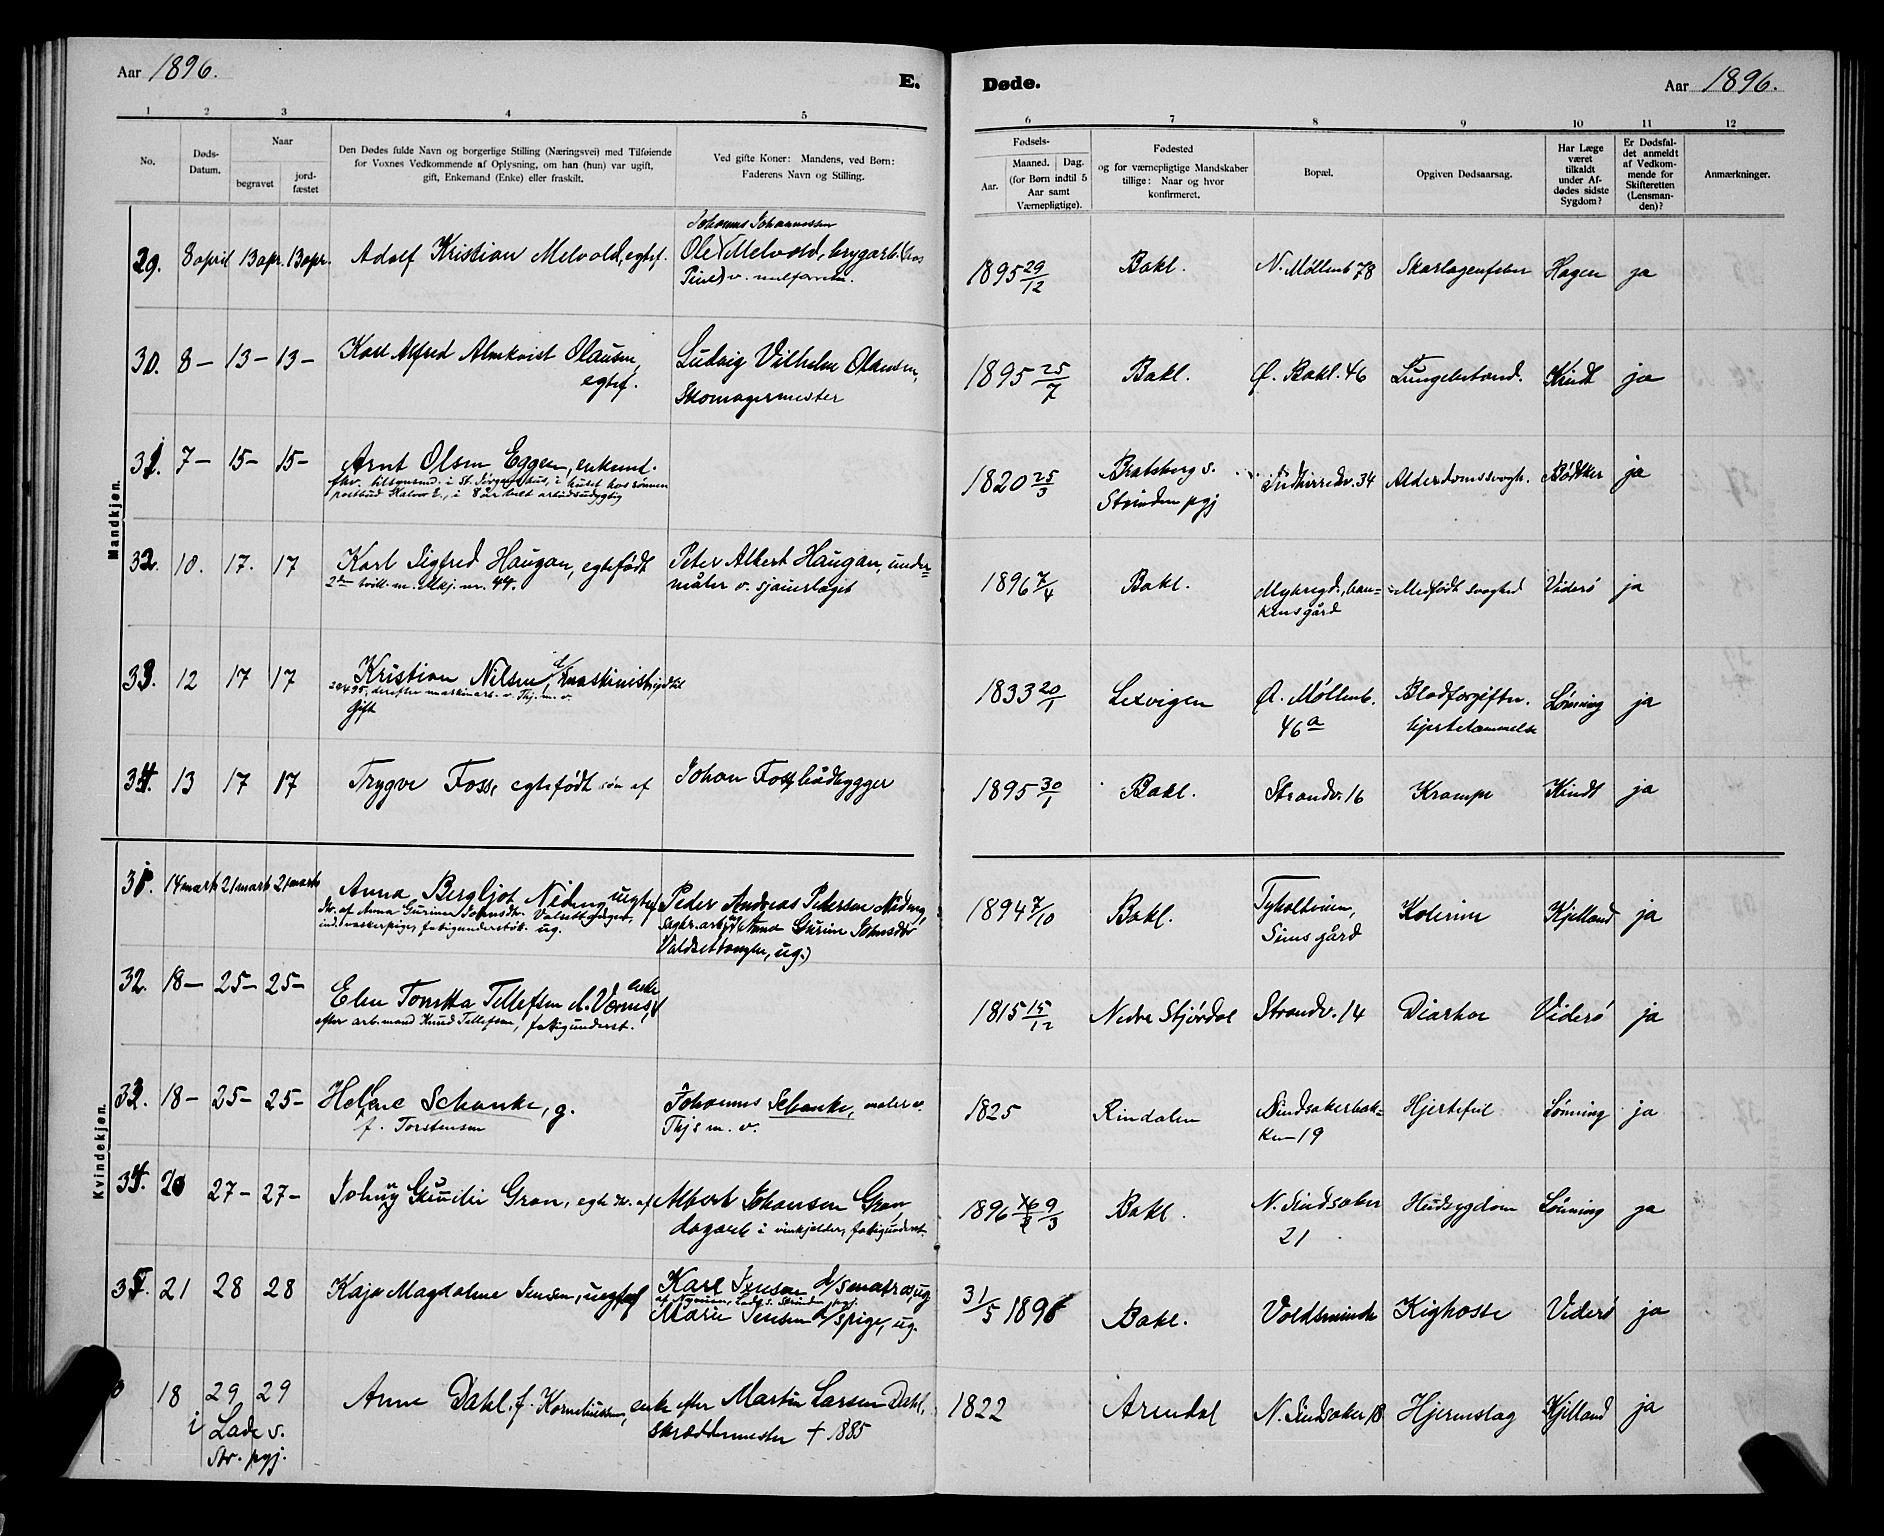 Aar 1896.
E.
Døde.
Aar 1896.
1 2 3 4 5
6 7 8 9 10 11 12
No.
Døds-
Datum.
Naar
begravet
jord-
fæstet
Den Dødes fulde Navn og borgerlige Stilling (Næringsvei) med Tilføiende
for Voxnes Vedkommende af Oplysning, om han (hun) var ugift,
gift, Enkemand (Enke) eller fraskilt.
Ved gifte Koner: Mandens, ved Børn:
Faderens Navn og Stilling.
Fødsels-
Aar.
Maaned. Dag.
(for Børn indtil 5
Aar samt
Værnepligtige).
Fødested
og for værnepligtige Mandskaber
tillige: Naar og hvor
konfirmeret.
Bopæl.
Opgiven Dødsaarsag.
Har Læge
været
tilkaldt
under Af-
dødes sidste
Sygdom?
Er Dødsfal-
det anmeldt
af Vedkom-
mende for
Skifteretten
(Lensman-
den)?
Anmærkninger.
Mandkjøn.
Johannes Johannessen
29. 8 april 13 apr. 13 apr. Adolf Kristian Melvold, egtef. Ole Melvold, brygarb. (hos 1895 29/12 Bakl. N. Møllenb 78 Skarlagensfeber Hagen ja
30. 8 – 13 – 13 – Karl Alfred Almkvist Olausen, Ludvig Vilhelm Olausen, 1895 25/7 Bakl. Ø. Bakl. 46 Kindt ja
egtef. Skomagermester
31. 7 – 15 – 15 – Arnt Olsen Eggen, enkemd. 1820 25/3 Bratsberg s. 34 Alderdomssvagh. Bødtker ja
i St. Jørgens hus, i huset hos sønnen Strinden pgj
postbud i 8 år helt arbeidsudygtig
32. 10. 17. 17 Karl Sigfred Haugan, egtefødt Peter Albert Haugan, under- 1896 7/4 Bakl. ban- Medfødt svaghed Viderø ja
2den tvill. m. nr. 44. måler v. kens gård
33. 12 17 17 Kristian Nilsen, maskinist 1833 20/1 Lexvigen Ø. Møllenb. Blodforgiftn. Lønning ja
derefter maskinarb. v. Thj. m. v. 46a hjertelammelse
Gift
34. 13 17 17 Trygve Foss, egtefødt søn af Johan Foss, bådbygger 1895 30/1 Bakl. Strandv. 16 Krampe Kindt ja
Kvindekjøn.
31. 14 marts 21 marts 21 marts Anna Bergljot Nideng uegtef Peder Andreas Petersen Nideng, 1894 7/10 Bakl. Tyholtveien, Kolerine Kjelland ja
dtr. af Anna Gurine Johnsdtr. Valsettangen, sagbr.arb. og Anna Gurine Johnsdtr Sims gård
fatigunderstøt. ug. Valdsettangen, ug.)
32. 18 – 25 – 25 – Elen Tomitta Tellefsen d. Værnes, enke 1815 15/12 Nedre Stjørdal Strandv. 14 Diarhoe Viderø ja
efter arb.mand Knud Tellefsen, fatigunderst.
33. 18 – 25 – 25 – Helene Schanke, g. Johannes Schanke, maler v. 1825 Rindalen Hjertefeil Lønning ja
f. Torstensen Thjs m. v. ken 19
34. 20 27 – 27 – Gron, egte dtr. af Albert Johansen Gron, 1896 9/3 Bakl. N. Singsaker Hudsygdom Lønning ja
dagarb. i vinkjelder, fatigunderst. 21
35. 21 28 28 Kaja Magdalene Jensen, uegtef Karl Jensen d/s matros, ug 31/5 1895 Bakl. Voldsminde Kighoste Viderø ja
Lade s. Strinden pgj.
Marie Jensen d/s pige, ug.
18 29 29 Anne Dahl f. Korneliussen, enke efter Martin Larsen Dahl, 1822 Arendal N. Singsaker 18 Hjerneslag Kjelland ja
i Lade s. Skræddermester † 1885
Str. pgj.